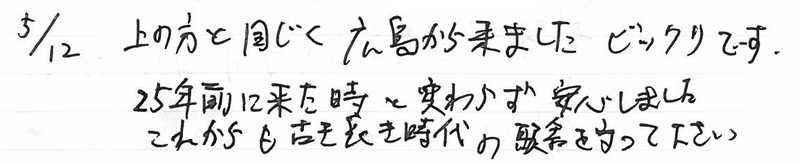 5/12 上の方と同じく 広島から来ました ビックリです.
25年前に来た時と変わらず 安心しました
これからも古き良き時代の駅舎を守って下さい